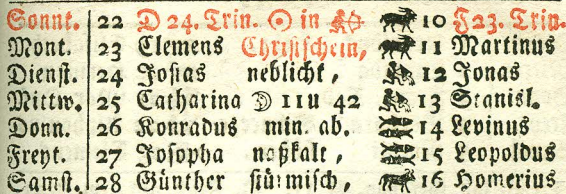 Sonnt. 22 D 24. Trin. ☉ in ♐ 10 F 23. Trin.
Mont. 23 Clemens Christschein, 11 Martinus
Dienst. 24 Josias neblicht, 12 Jonas
Mittw. 25 Catharina ☽ 11 u 42 13 Stanisl.
Donn. 26 Konradus min. ab. 14 Levinus
Freyt. 27 Josopha naßkalt, 15 Leopoldus
Samst. 28 Günther stürmisch, 16 Homerius